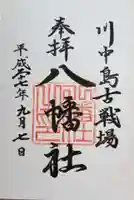 川中島古戦場
奉拝
八幡社
平成廿七年九月七日